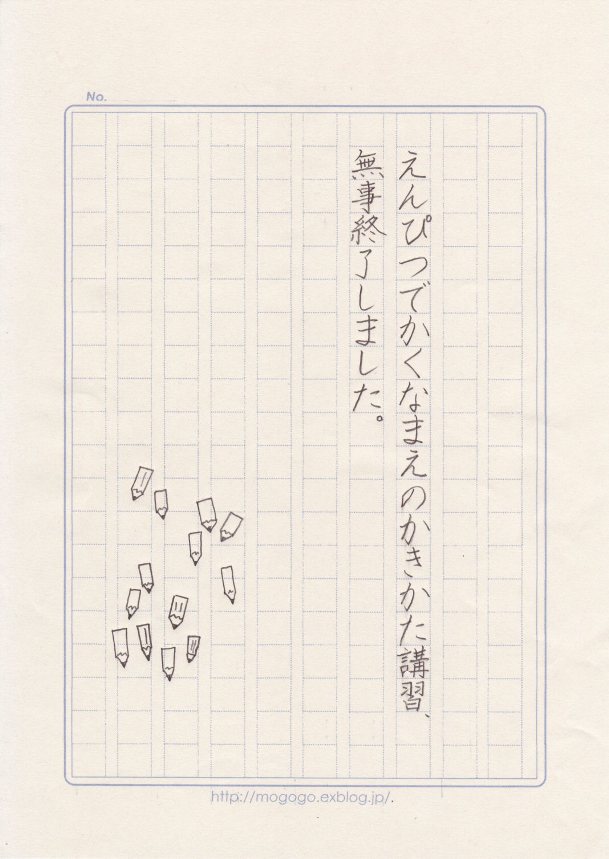 No.
えんぴつでかくなまえのかきかた講習、
無事終了しました。
http://mogogo.exblog.jp/.